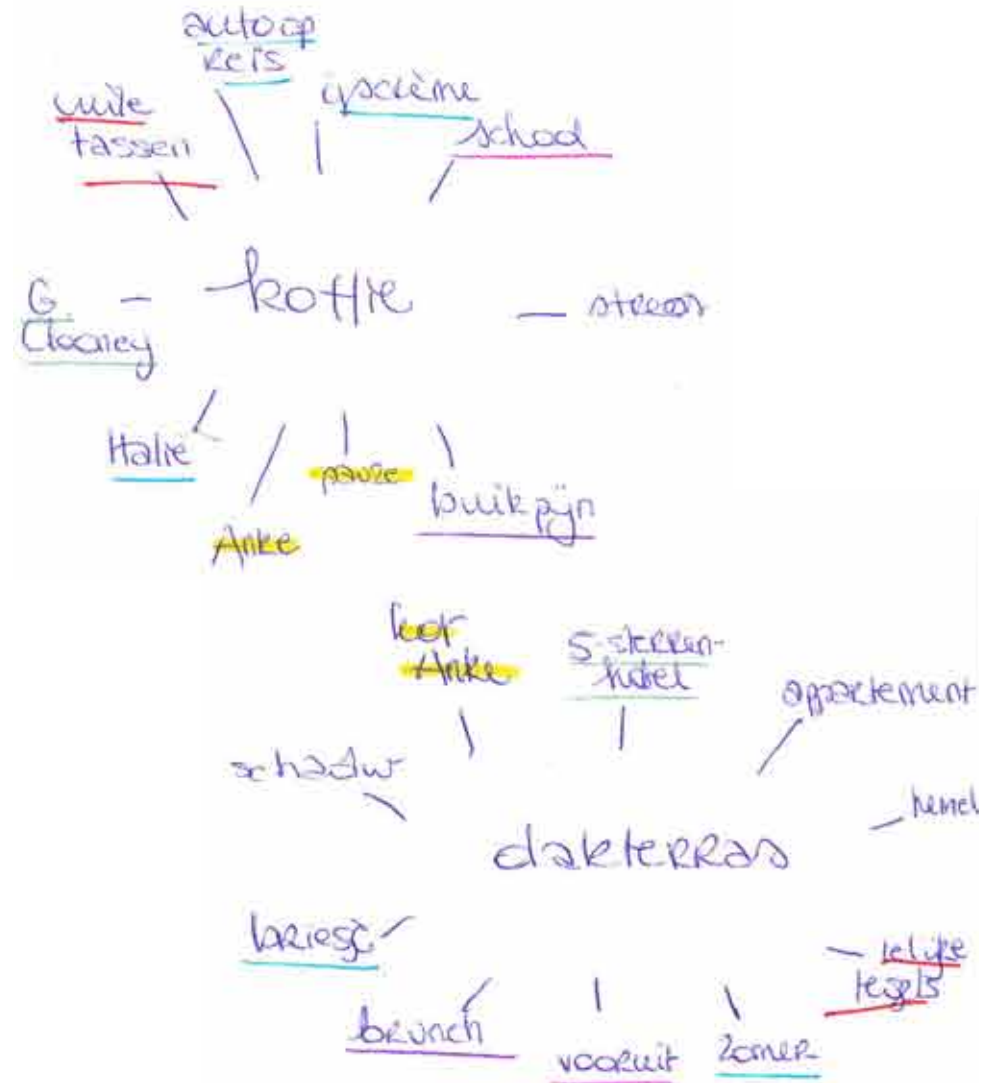 auto op
reis
vuile
tassen
ijscrème
school
G.
Clooney
koffie
stress
Italië
pauze
Anke
buikpijn
kot
Anke
5-sterren-
hotel
appartement
schaduw
hemel
dakterras
briesje
lelijke
tegels
brunch
vooruit
zomer